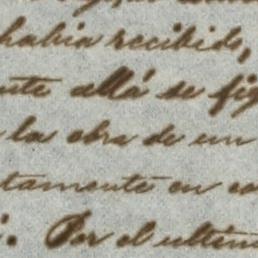 habia recibido,
nte allá se fig
la obra de un
tamente en co
. Por el ultim